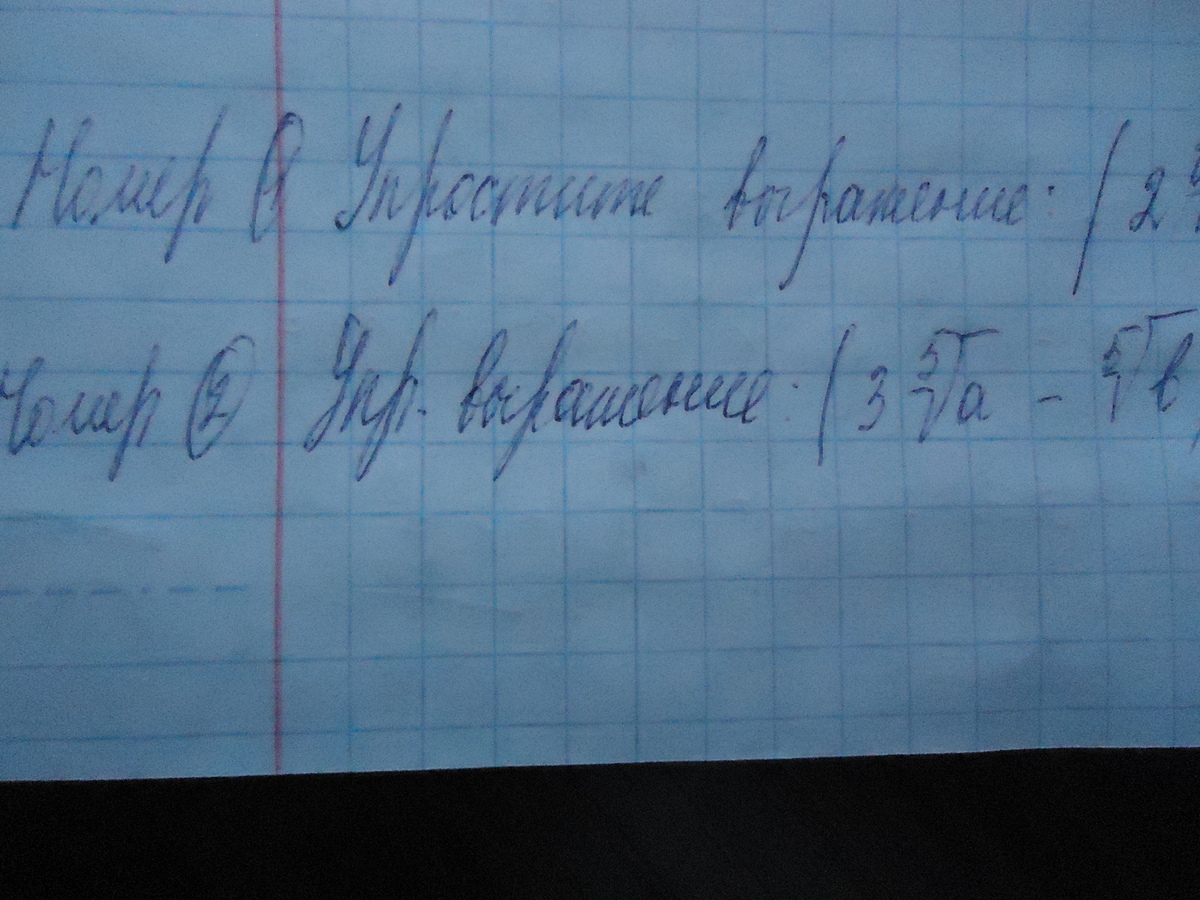 Номер ① Упростите выражение: ( 2
Номер ② Упр. выражение: ( 3 ⁵√a - ⁵√b